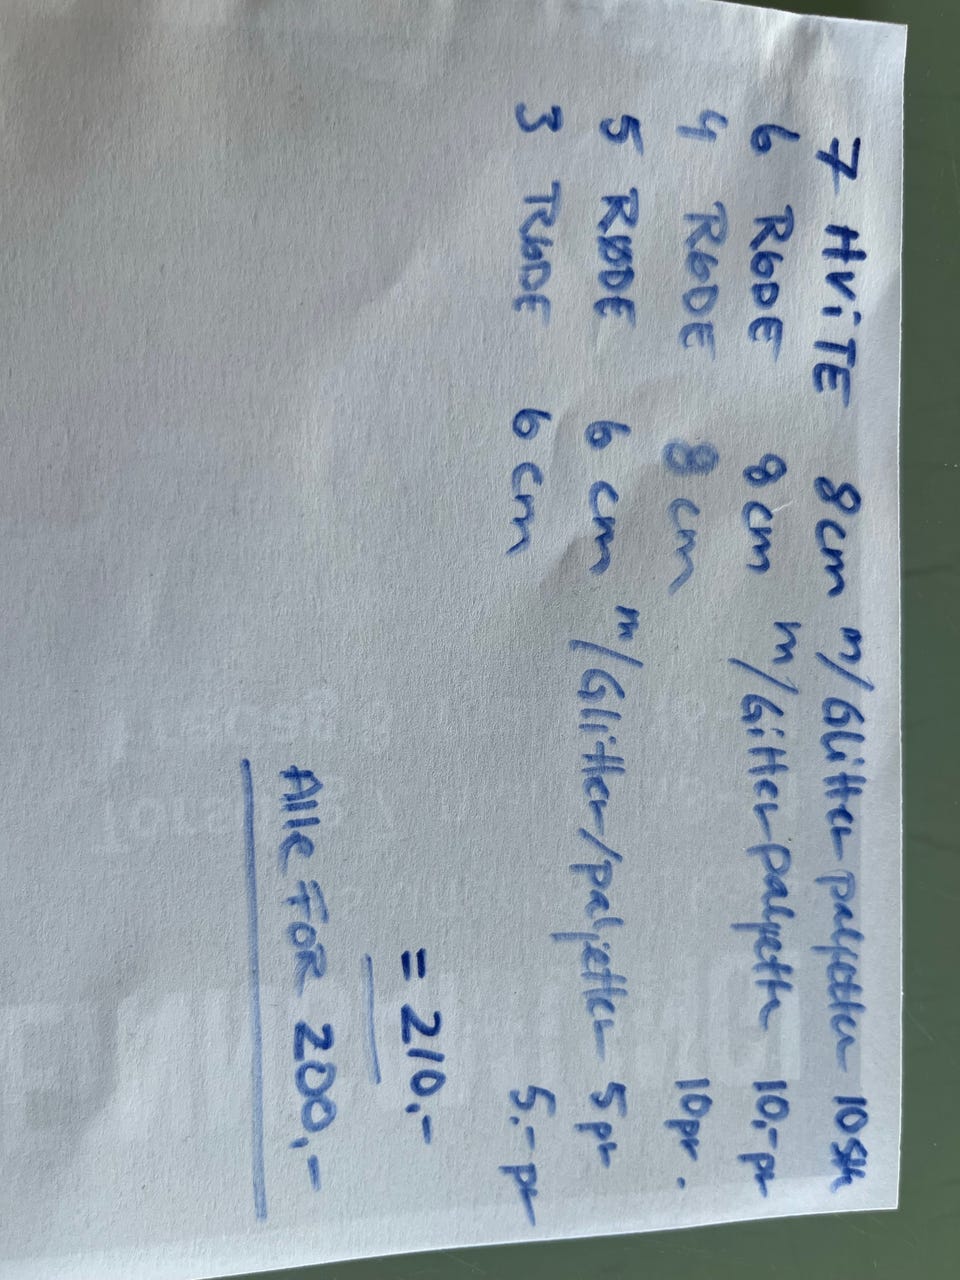 7 HViTE 8cm m/Glitter palyetter 10 stk
6 RØDE 8 cm m/Glitter palyetter 10,- pr
4 RØDE 8 cm 10 pr.
5 RØDE 6 cm m/Glitter/paljetter 5 pr
3 RØDE 6 cm 5.- pr
= 210,-
Alle FOR 200,-